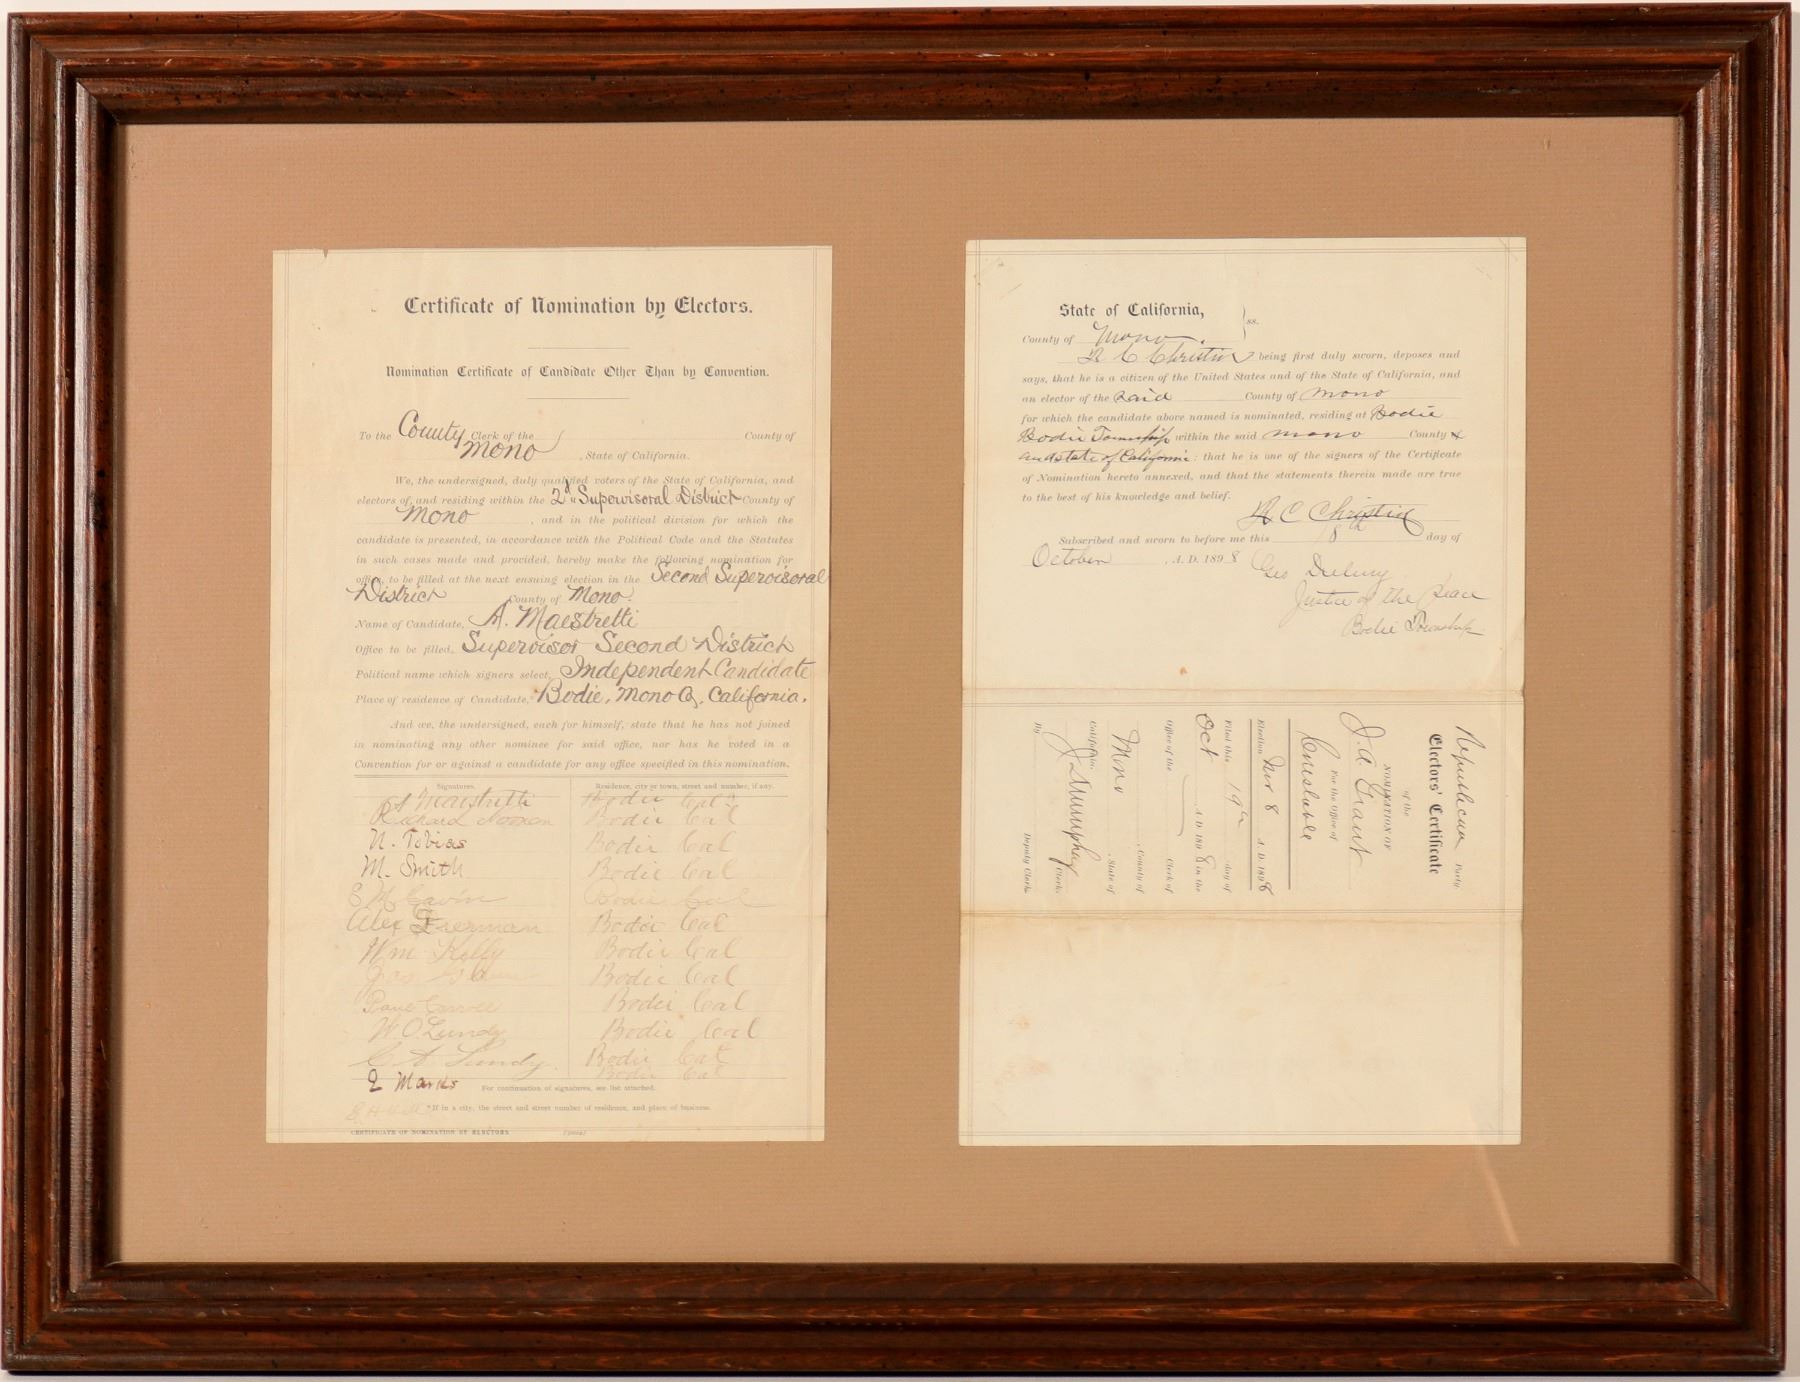 Certificate of Nomination by Electors.
Nomination Certificate of Candidate Other Than by Convention.
To the County Clerk of the County of
Mono, State of California.
We, the undersigned, duly qualified voters of the State of California, and
electors of, and residing within the 2d Supervisoral District County of
Mono, and in the political division for which the
candidate is presented, in accordance with the Political Code and the Statutes
in such cases made and provided, hereby make the following nomination for
office, to be filled at the next ensuing election in the Second Supervisoral
District County of Mono.
Name of Candidate, A. Maestretti
Office to be filled, Supervisor Second District
Political name which signers select, Independent Candidate
Place of residence of Candidate, Bodie, Mono Co, California.
And we, the undersigned, each for himself, state that he has not joined
in nominating any other nominee for said office, nor has he voted in a
Convention for or against a candidate for any office specified in this nomination.
Signatures. Residence, city or town, street and number, if any.
Maestretti Bodie Cal
Richard Bodie Cal
N. Tobias Bodie Cal
M. Smith Bodie Cal
Bodie Cal
Alex Bodie Cal
Wm Kelly Bodie Cal
Jas Bodie Cal
Bodie Cal
W. O. Lundy Bodie Cal
Lundy. Bodie Cal
Marks Bodie Cal
For continuation of signatures, see list attached.
*If in a city, the street and street number of residence, and place of business.
CERTIFICATE OF NOMINATION BY ELECTORS
State of California, } ss.
County of Mono.
C Christin being first duly sworn, deposes and
says, that he is a citizen of the United States and of the State of California, and
an elector of the said County of Mono
for which the candidate above named is nominated, residing at Bodie
Bodie Township within the said Mono County &
and state of California: that he is one of the signers of the Certificate
of Nomination hereto annexed, and that the statements therein made are true
to the best of his knowledge and belief.
C Christin
Subscribed and sworn to before me this 18th day of
October, A. D. 1898 Geo
Justice of the Peace
Bodie Township
Republican Party.
Electors' Certificate
of the
NOMINATION OF
J. A. Grant
For the Office of
Constable
Election Nov 8 A. D. 1898
Filed this 19th day of
Oct A. D. 1898 in the
Office of the Clerk of
Mono, County of
, State of
California.
Clerk.
By
Deputy Clerk.